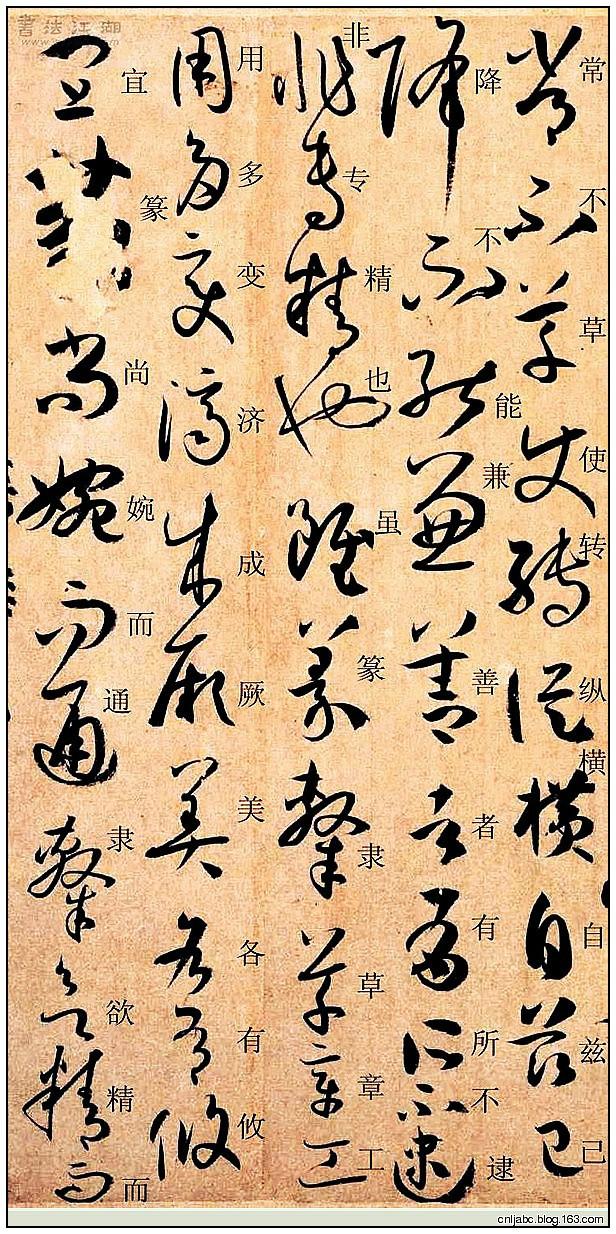 常不草使转纵横自兹己
降不能兼善者有所不逮
非专精也虽篆隶草章工
用多变济成厥美各有攸
宜篆尚婉而通隶欲精而
書法江湖
cnljabc.blog.163.com